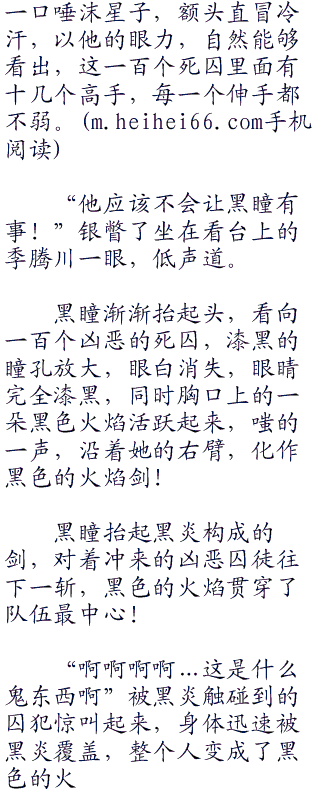 一口唾沫星子，额头直冒冷
汗，以他的眼力，自然能够
看出，这一百个死囚里面有
十几个高手，每一个伸手都
不弱。(m.heihei66.com手机
阅读)
“他应该不会让黑瞳有
事！”银瞥了坐在看台上的
季腾川一眼，低声道。
黑瞳渐渐抬起头，看向
一百个凶恶的死囚，漆黑的
瞳孔放大，眼白消失，眼睛
完全漆黑，同时胸口上的一
朵黑色火焰活跃起来，嗤的
一声，沿着她的右臂，化作
黑色的火焰剑！
黑瞳抬起黑炎构成的
剑，对着冲来的凶恶囚徒往
下一斩，黑色的火焰贯穿了
队伍最中心！
“啊啊啊啊…这是什么
鬼东西啊”被黑炎触碰到的
囚犯惊叫起来，身体迅速被
黑炎覆盖，整个人变成了黑
色的火